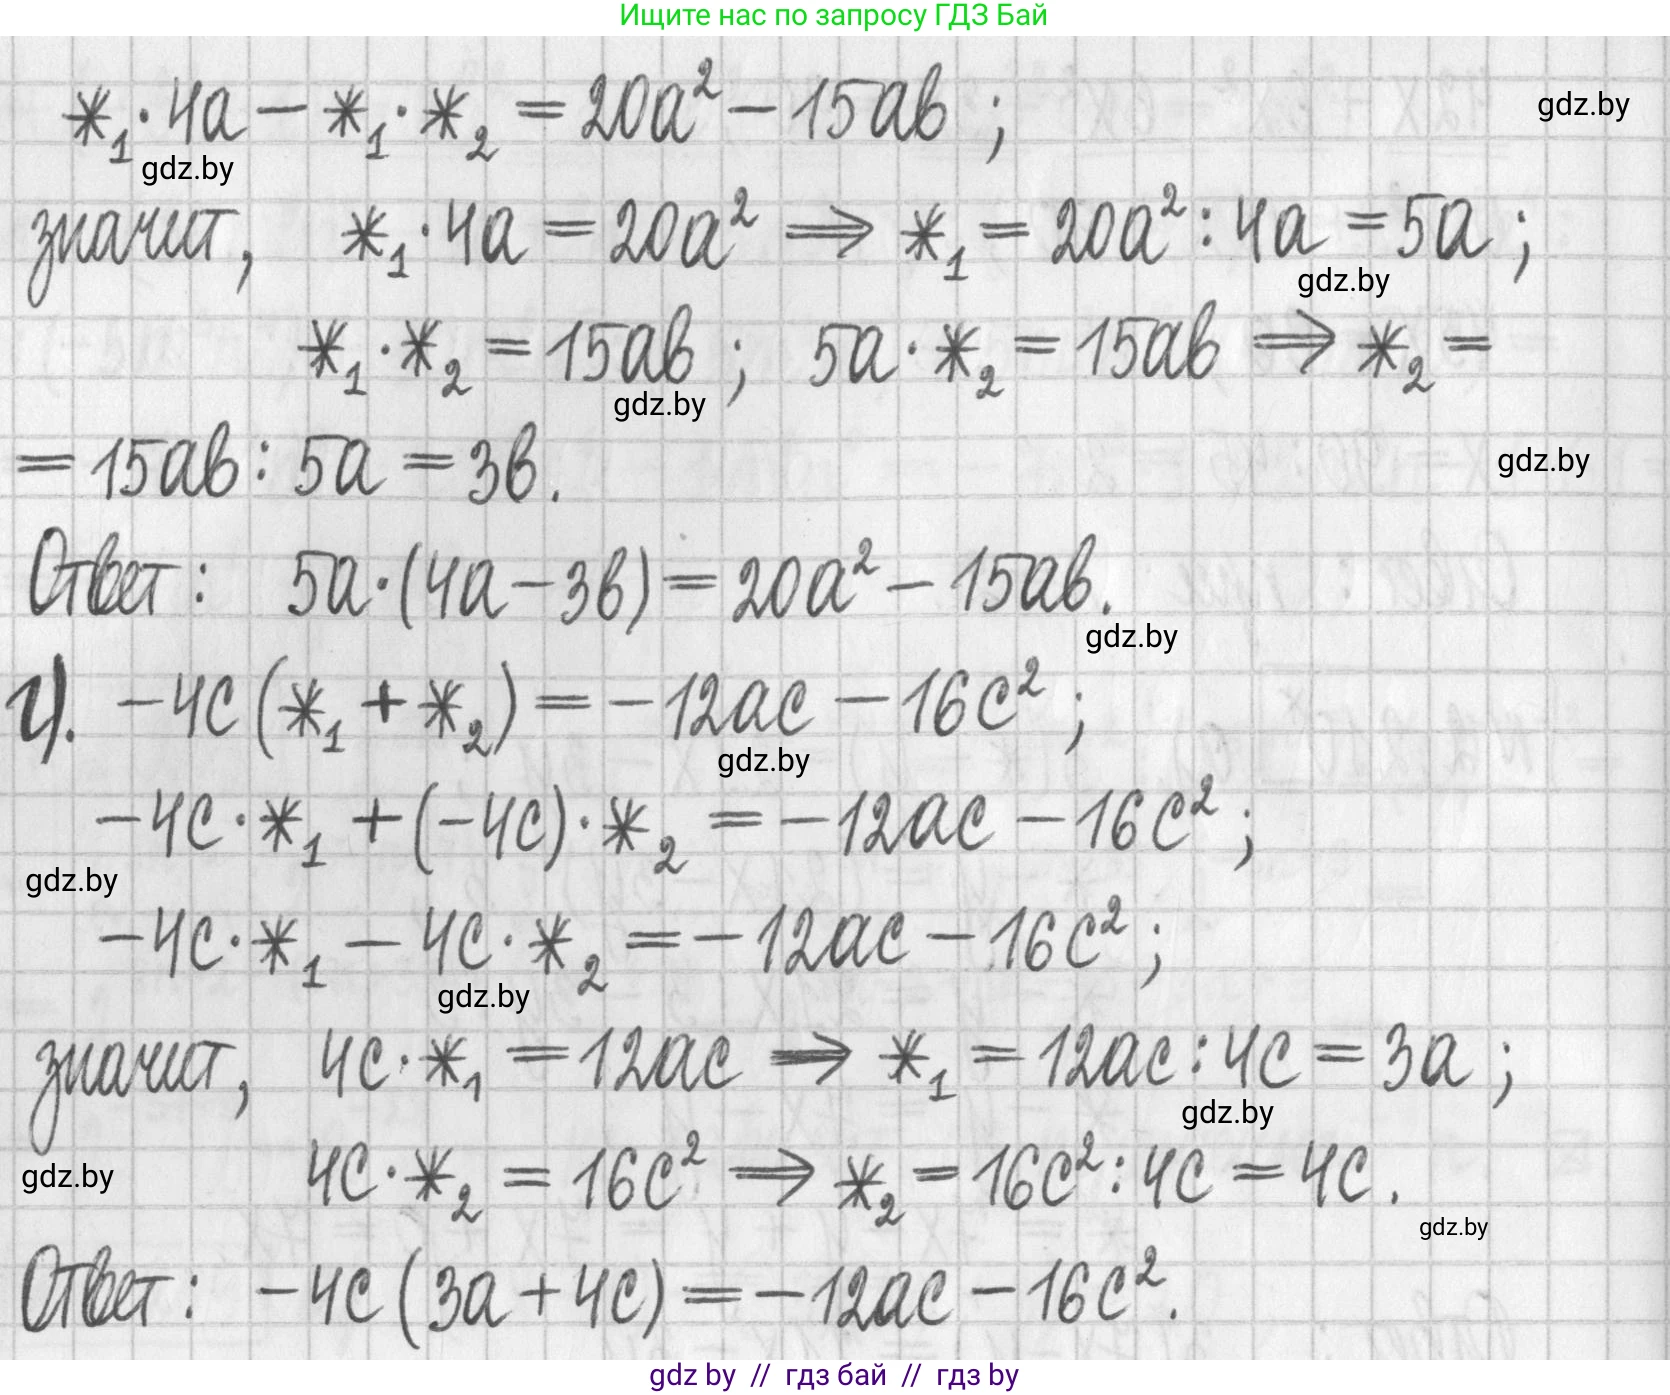 Ищите нас по запросу ГДЗ Бай
*₁·4a − *₁·*₂ = 20a² − 15ab ;
gdz.by
gdz.by
значит, *₁·4a = 20a² ⟹ *₁ = 20a² : 4a = 5a ;
gdz.by
*₁·*₂ = 15ab ; 5a·*₂ = 15ab ⟹ *₂ =
gdz.by
= 15ab : 5a = 3b.
gdz.by
Ответ: 5a·(4a − 3b) = 20a² − 15ab.
gdz.by
г). −4c(*₁ + *₂) = −12ac − 16c² ;
gdz.by
−4c·*₁ + (−4c)·*₂ = −12ac − 16c² ;
gdz.by
−4c·*₁ − 4c·*₂ = −12ac − 16c² ;
gdz.by
значит, 4c·*₁ = 12ac ⟹ *₁ = 12ac : 4c = 3a ;
gdz.by
4c·*₂ = 16c² ⟹ *₂ = 16c² : 4c = 4c.
gdz.by
gdz.by
Ответ: −4c(3a + 4c) = −12ac − 16c².
gdz by // гдз бай // гдз by